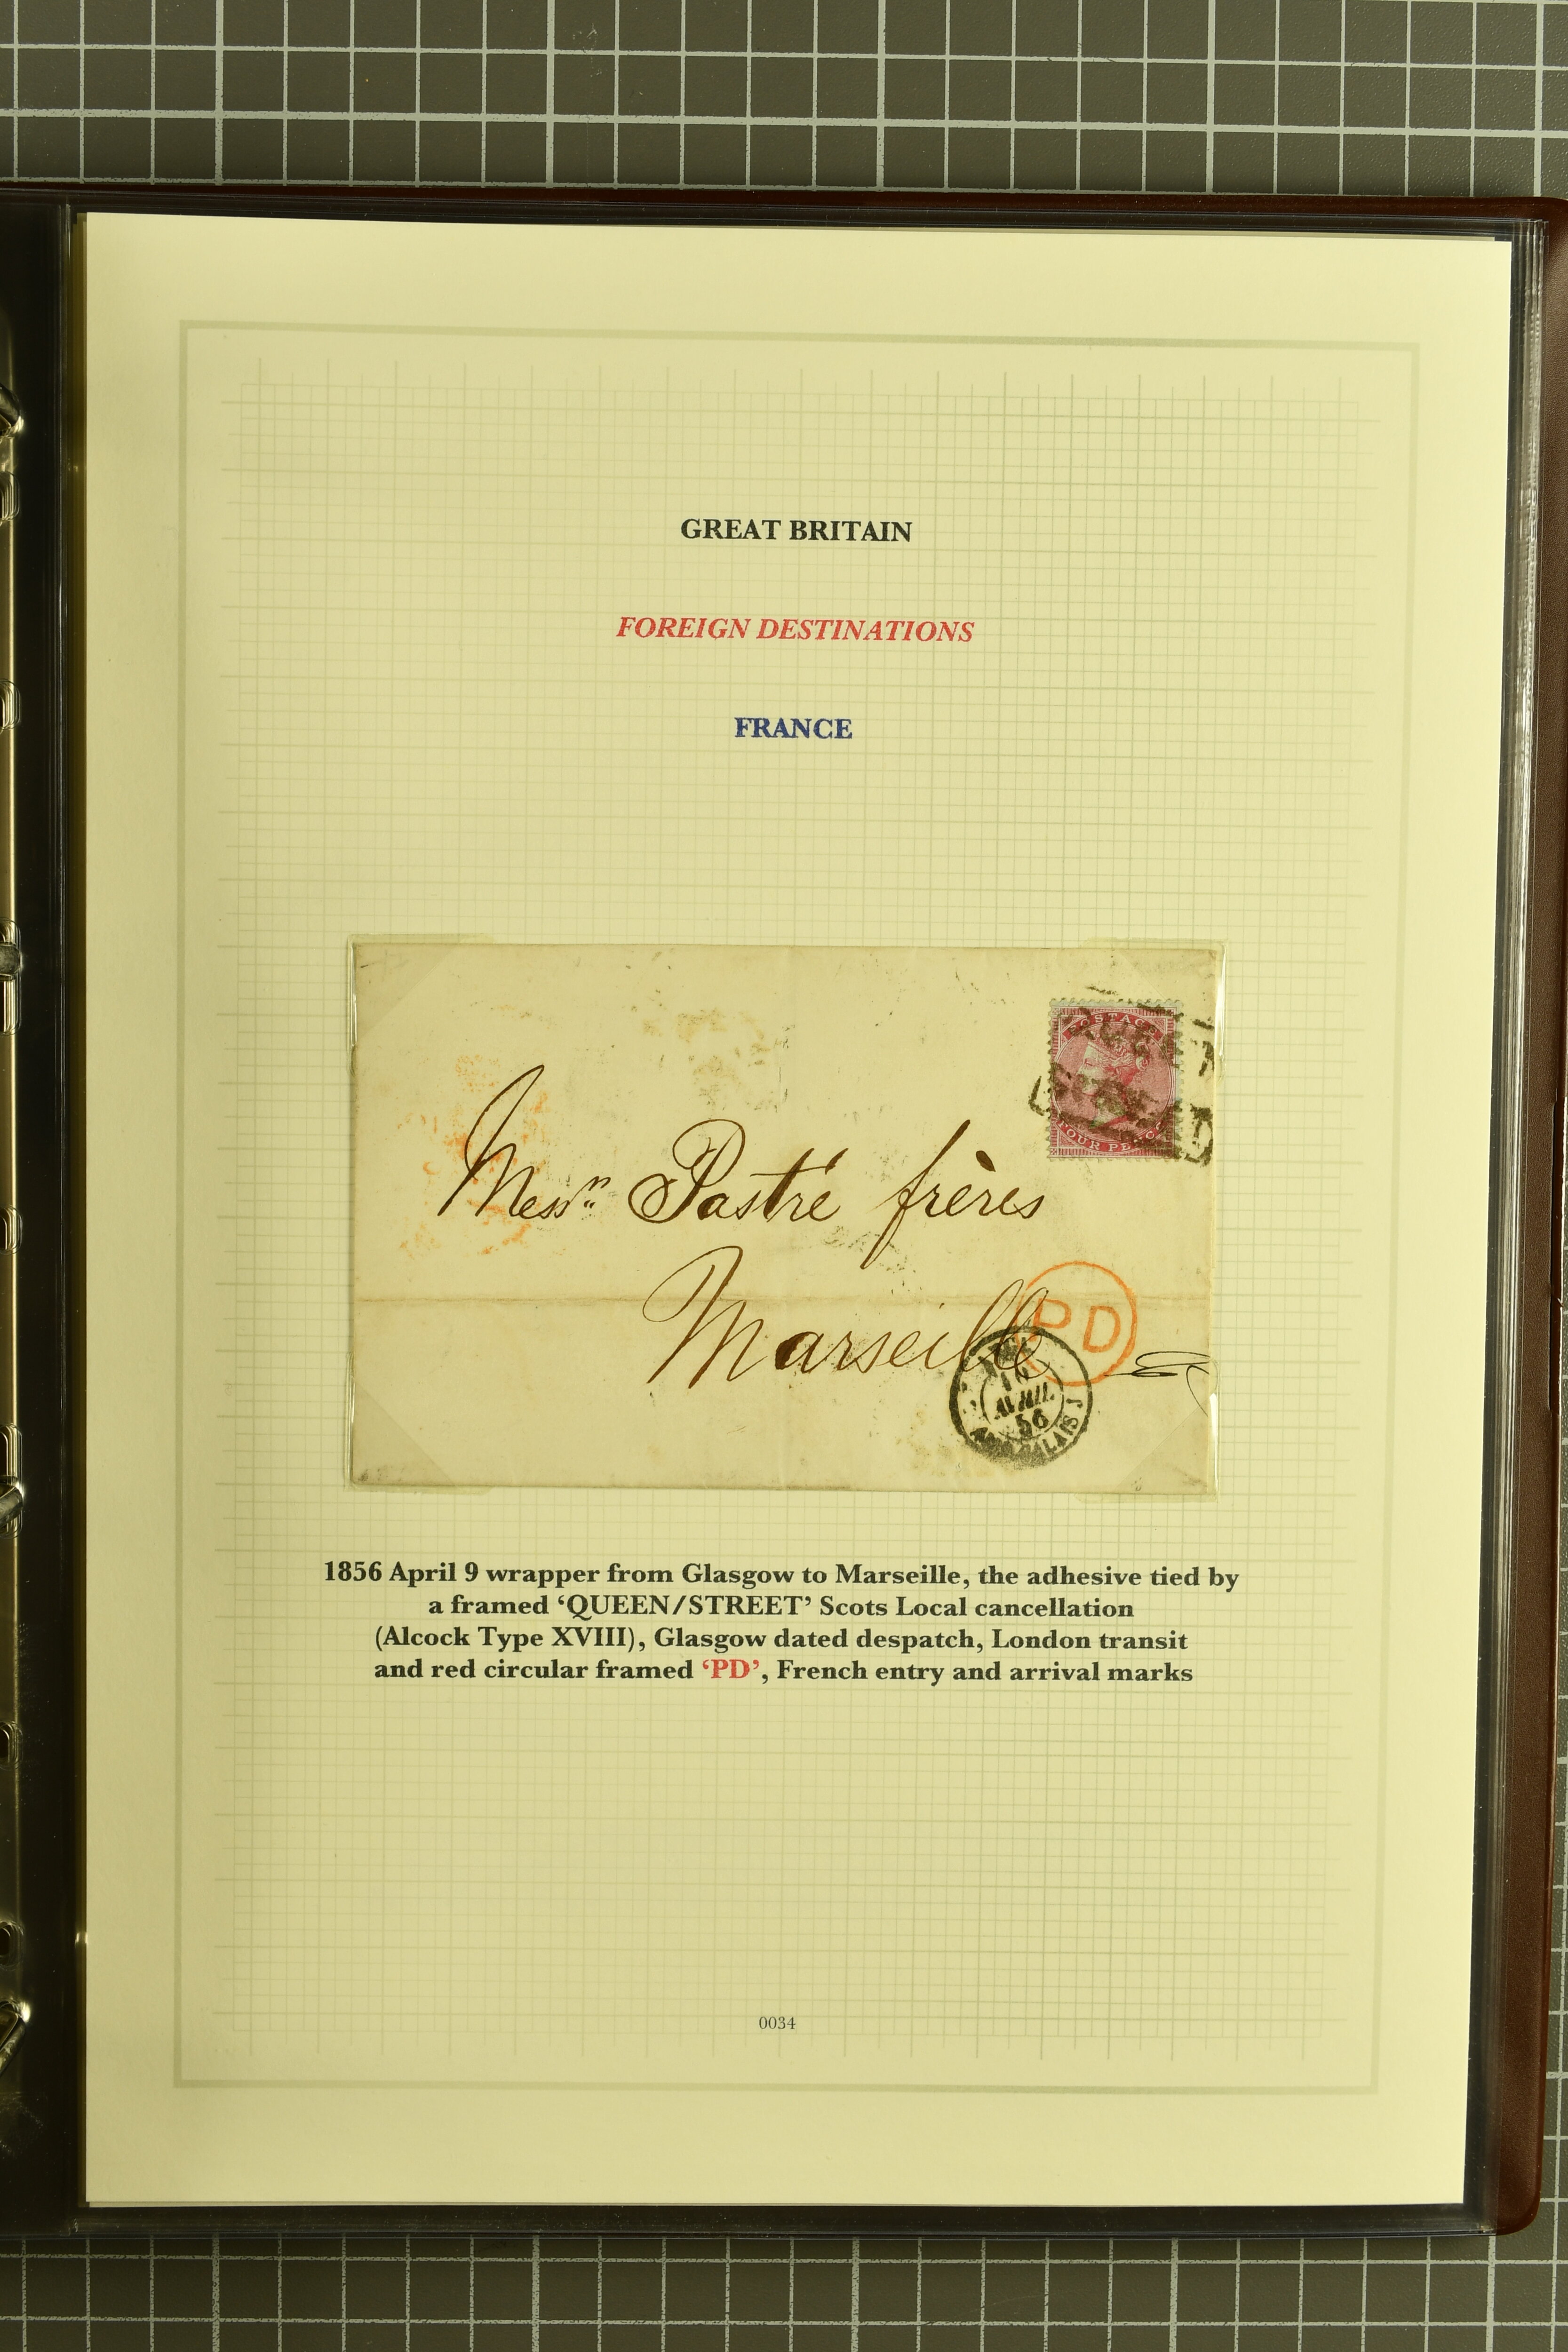 GREAT BRITAIN
FOREIGN DESTINATIONS
FRANCE
POSTAGE
FOUR PENCE
Messrs Pastré frères
Marseille
PD
AVRIL
56
CALAIS
1856 April 9 wrapper from Glasgow to Marseille, the adhesive tied by
a framed ‘QUEEN/STREET’ Scots Local cancellation
(Alcock Type XVIII), Glasgow dated despatch, London transit
and red circular framed ‘PD’, French entry and arrival marks
0034